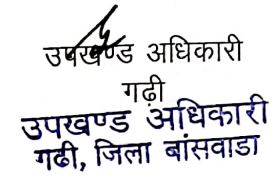 उपखण्ड अधिकारी
गढ़ी
उपखण्ड अधिकारी
गढी, जिला बांसवाडा